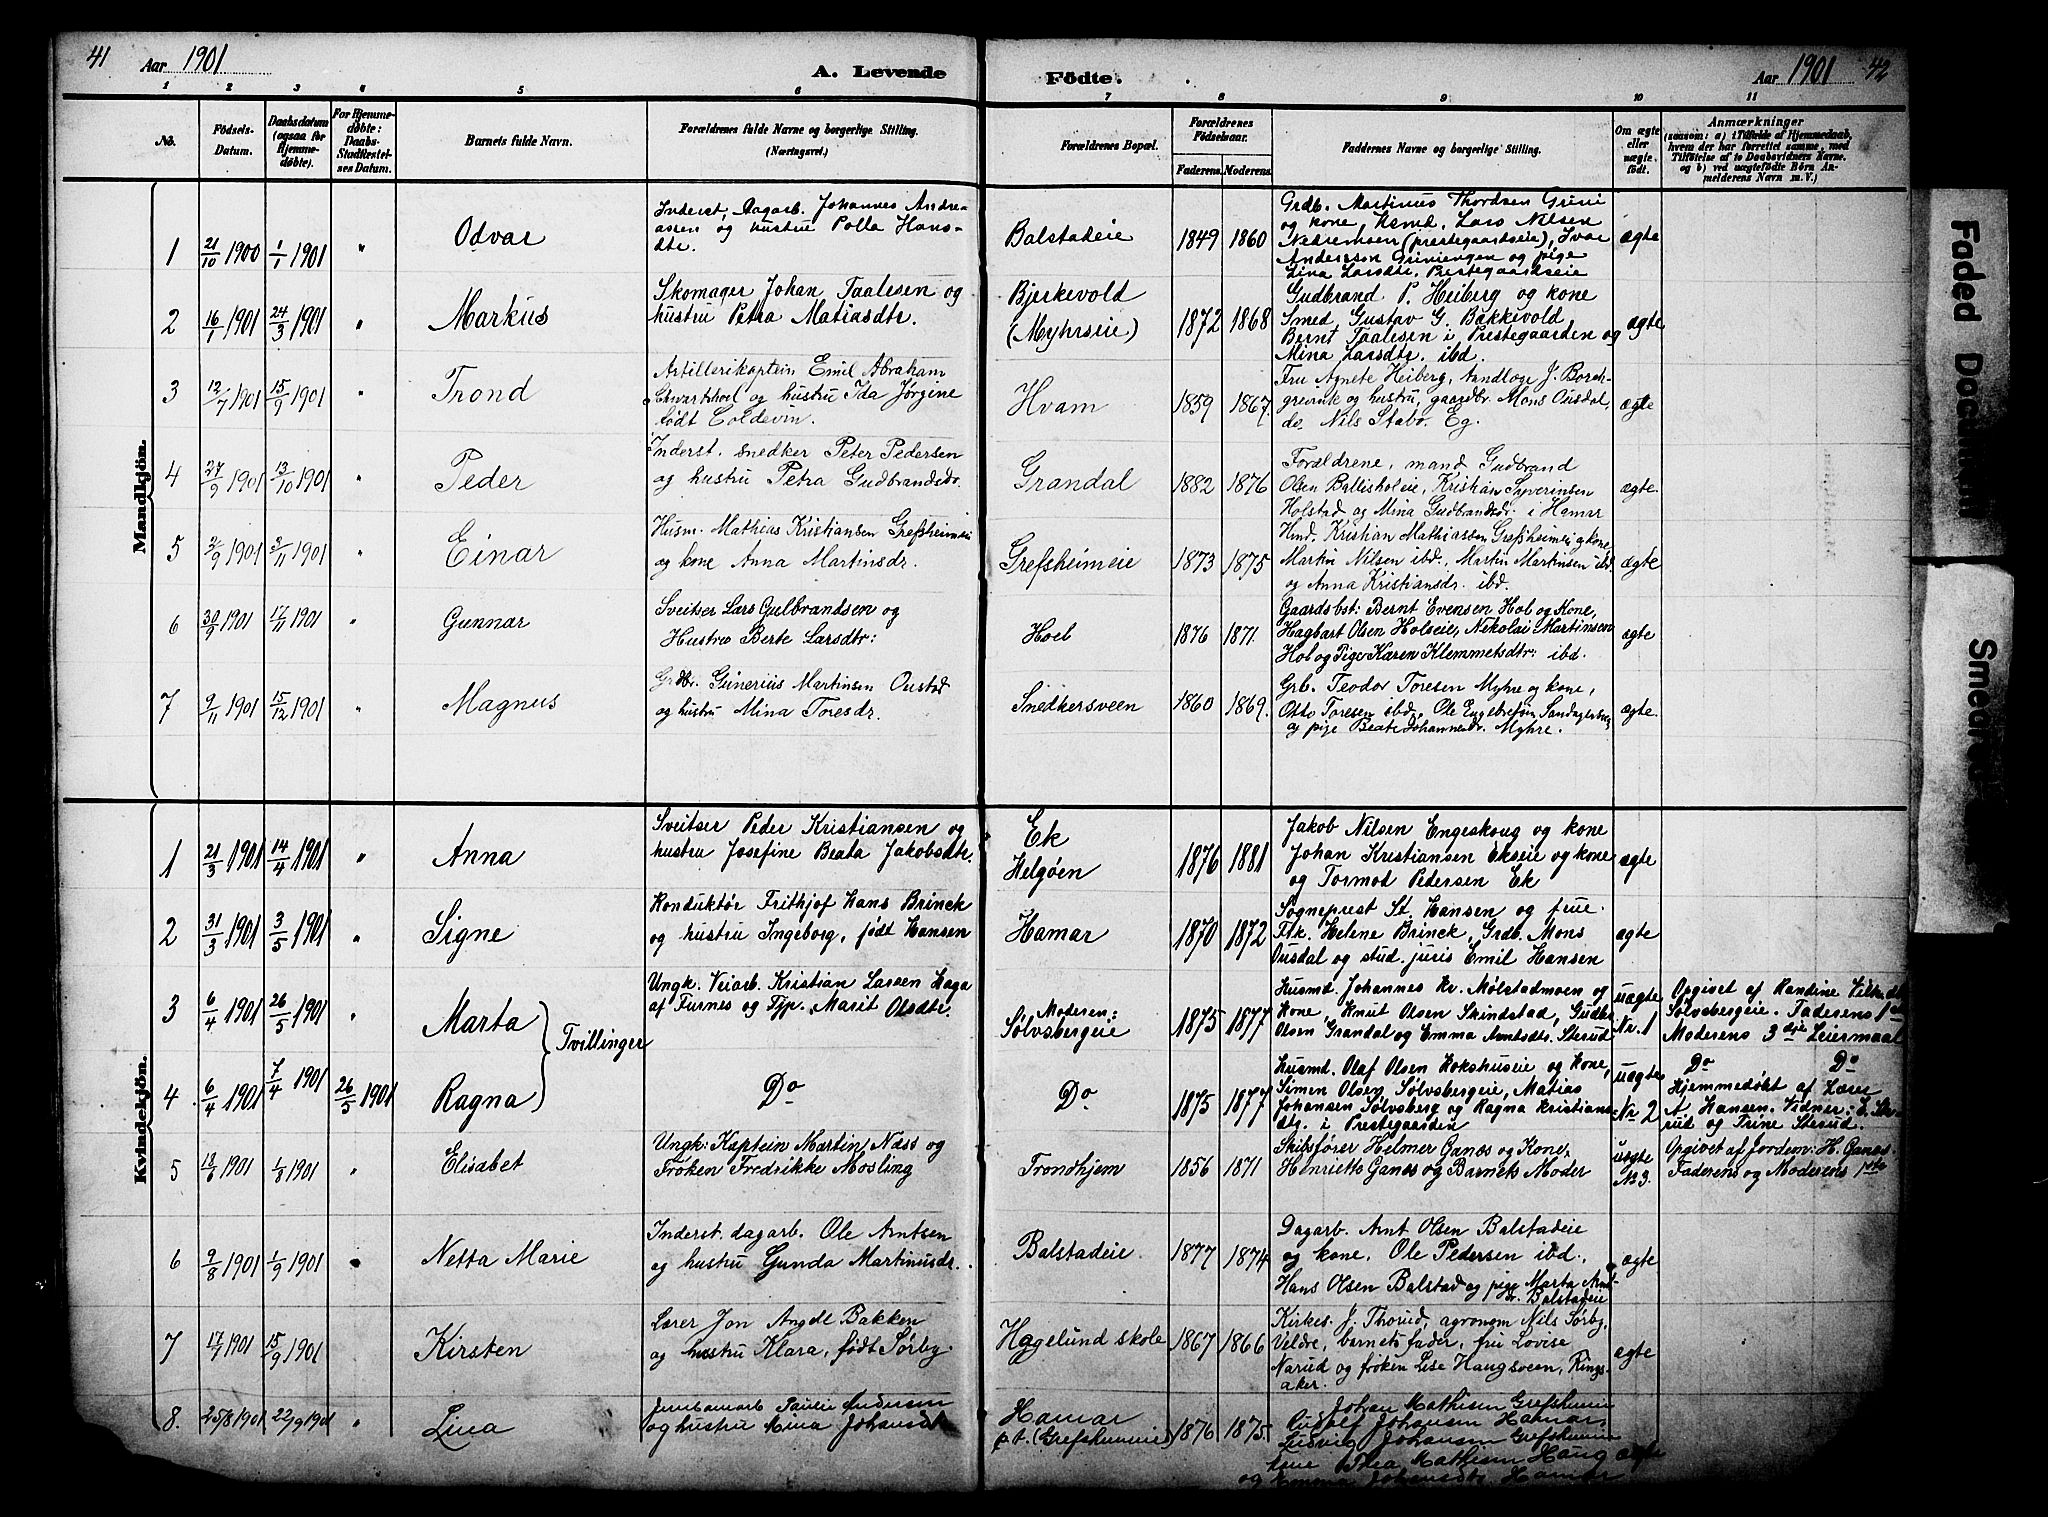 41 Aar 1901 A. Levende Födte. Aar 1901 42
1 2 3 4 5 6 7 8 9 10 11
No.
Födsels-
Datum.
Daabsdatum
(ogsaa for
Hjemme-
döbte).
For Hjemme-
döbte:
Daabs-
Stadfæstel-
ses Datum.
Barnets fulde Navn.
Forældrenes fulde Navne og borgerlige Stilling.
(Næringsvei.)
Forældrenes Bopæl.
Forældrenes
Födselsaar.
Faderens. Moderens.
Faddernes Navne og borgerlige Stilling.
Om ægte
eller
uægte
födt.
Anmærkninger
(saasom: a) i Tilfælde af Hjemmedaab,
hvem der har forrettet samme, med
Tilföielse af to Daabsvidners Navne.
og b) ved uægtefödte Börn An-
melderens Navn m. V.)
Mandkjön.
1 21/10 1900 1/1 1901 " Odvar
Inderst, Dagarb. Johannes Andre-
assen og hustru Polla Hans-
dtr.
Balstadeie 1849 1860
Grdb. Martinus Thordsen Grini
og kone, Husmd. Lars Nilsen
Nedremoen (prestegaardseie), Ivar
Anderssen Griniengen og pige
Lina Larsdtr. Prestegaardseie
ægte
2 16/1 1901 24/3 1901 " Markus
Skomager Johan Taalesen og
hustru Petra Matiasdtr.
Bjerkevold
(Myhrseie)
1872 1868
Gudbrand P. Heiberg og kone
Smed Gustav G. Bakkevold
Bernt Taalesen i Prestegaarden og
Mina Larsdtr. ibd.
ægte
3 12/7 1901 15/9 1901 " Trond
Artillerikaptein Emil Abraham
Schwartshoel og hustru Ida Jørgine
født Coldevin.
Hvam 1859 1867.
Fru Agnete Heiberg, tandlæge J. Borch-
grevink og hustru, gaardbr. Mons Ousdal,
do. Nils Stabo. Eg.
ægte
4 27/9 1901 13/10 1901 " Peder
Inderst. snedker Peter Pedersen
og hustru Petra Gudbrandsdr.
Grandal 1882 1876
Forældrene, mand Gudbrand
Olsen Ballisholeie, Kristian Syverinsen
Holstad og Mina Gudbrandsdr. i Hamar
ægte.
5 2/9 1901 3/11 1901 " Einar
Husm. Mathias Kristiansen Grefsheimeie
og kone Anna Martinsdr.
Grefsheimeie 1873 1875
Hmd. Kristian Mathiassen Grefsheimeie og kone,
Martin Nilsen ibd., Martin Martinsen ibd
og Anna Kristiansdr. ibd.
ægte
6 30/9 1901 17/11 1901 " Gunnar
Sveitser Lars Gulbrandsen og
Hustru Berte Larsdtr:
Hoel 1876 1871.
Gaardsbst: Bernt Evensen Hol og Kone,
Hagbart Olsen Holseie, Nikolai Martinsen
Hol og Pige Karen Klemmetsdtr: ibd.
ægte
7 9/11 1901 15/12 1901 " Magnus
Grdbr. Ginerius Martinsen Oustad
og hustru Mina Toresdr.
Snedkersveen 1860 1869.
Grb. Teodor Toresen Myhre og kone,
Otto Toresen ibd., Ole Engebretsen
og pige Beate Johannesdr. Myhre.
ægte.
Kvindekjön.
1 21/3 1901 14/4 1901 " Anna
Sveitser Peder Kristiansen og
hustru Josefine Beata Jakobsdtr.
Ek
Helgøen
1876 1881
Jakob Nilsen Engeskoug og kone
Johan Kristiansen Ekseie og kone
og Tormod Pedersen Ek
ægte
2 31/3 1901 3/5 1901 " Signe
Konduktør Frithjof Hans Brinck
og hustru Ingeborg, født Hansen
Hamar 1870 1872
Sogneprest St. Hansen og frue.
Frk. Helene Brinck, Grdb. Mons
Ousdal og stud. juris Emil Hansen
ægte
3 6/4 1901 26/5 1901 " Marta
Tvillinger
Ungk. Veiarb. Kristian Larsen Haga
af Furnes og Tjp. Marit Olsdtr.
Moderen:
Sølvsbergeie
1875 1877
Husmd. Johannes Kr. Mølstadmoen og
Kone, Knut Olsen Skindstad, Gudbr.
Olsen Grandal og Emma Arntsdtr. Sterud
uægte
Nr. 1
Opgivet af Randine
Sølvsbergeie. Faderens 1ste
Moderens 3die Leiermaal
4 6/4 1901 7/4 1901 26/5 1901 Ragna
Do
Do 1875 1877
Husmd. Olaf Olsen Kokshuseie og Kone,
Simen Olsen Sølvsbergeie, Matias
Johansen Sølvsberg og Ragna Kristians-
dtr. i Prestegaarden
uægte
Nr 2
Do Do
Hjemmedøbt af Lærer
A Hansen. Vidner: E. Ste-
rud og Trine Sterud.
5 13/6 1901 1/8 1901 " Elisabet
Ungk: Kaptein Martin Næss og
Frøken Fredrikke Mosling
Trondhjem 1856 1871
Skibsfører Helmer Ganæs og Kone,
Henriette Ganæs og Barnets Moder
uægte
No 3.
Opgivet af Jordem: H. Ganæs.
Faderens og Moderens 1ste
6 9/8 1901 1/9 1901 " Netta Marie
Inderst. dagarb. Ole Arntsen
og hustru Gunda Martinusdr.
Balstadeie 1877 1874
Dagarb. Arnt Olsen Balstadeie
og kone, Ole Pedersen ibd.,
Hans Olsen Balstad og pige Marta Arnt-
dr. Balstadeie
ægte
7 17/7 1901 15/9 1901 " Kirsten
Lærer Jon Angel Bakken
og hustru Klara, født Sørby.
Hagelund skole 1867 1866
Kirkes. J. Thorud, agronom Nils Sørby,
Veldre, barnets fader, fru Lovise
Narud og frøken Lise Haugsveen, Rings-
aker.
ægte
8. 25/8 1901 22/9 1901 " Lina
Jernbanearb Paulin Andersen
og hustru Mina Johansdtr
Hamar
p.t. (Grefsheimeie)
1876 1875.
Johan Mathisen Grefsheimeie
Rudolf Johansen Hamar,
Ludvig Johansen Grefsheimeie
Thea Mathisen Haug ægte
og Emma Johansdtr Hamar
Faded Document
Smeared